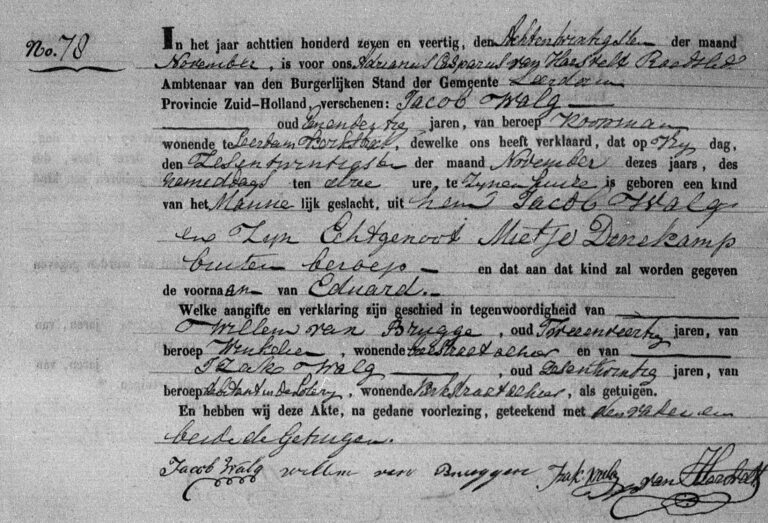 No. 78
In het jaar achttien honderd zeven en veertig, den Achtentwintigsten der maand
November, is voor ons, Adrianus Casparus van Haestelt Raadslid
Ambtenaar van den Burgerlijken Stand der Gemeente Leerdam
Provincie Zuid-Holland, verschenen: Jacob Walg
oud jaren, van beroep Koopman
wonende te Leerdam Kerkstraat, dewelke ons heeft verklaard, dat op Vrij dag,
den Zesentwintigsten der maand November dezes jaars, des
namiddags ten drie ure, te Zijnen huize is geboren een kind
van het Manne lijk geslacht, uit hem Jacob Walg
en Zijn Echtgenoot Mietje Denekamp
buiten beroep en dat aan dat kind zal worden gegeven
de voornaam van Eduard.
Welke aangifte en verklaring zijn geschied in tegenwoordigheid van
Willem van Brugge, oud Tweeenveertig jaren, van
beroep Winkelier, wonende en van
Izak Walg, oud jaren, van
beroep debitant in de Lotery, wonende Kerkstraat alhier, als getuigen.
En hebben wij deze Akte, na gedane voorlezing, geteekend met den vader en
beide de Getuigen.
Jacob Walg willem van Bruggen Izak Walg van Haestelt